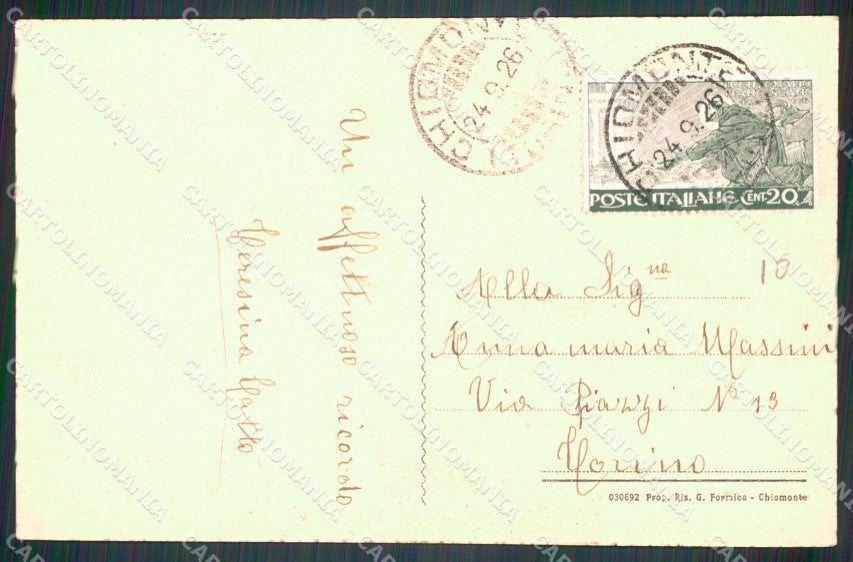 CHIOMONTE
24.9.26
TORINO
CHIOMONTE
24.9.26
POSTE ITALIANE CENT. 20
Un affettuoso ricordo
Teresina
Alla Signa
10
Anna maria Massini
Via Piazzi No 13
Torino
030692 Prop. Ris. G. Formica - Chiomonte
CARTOLINOMANIA